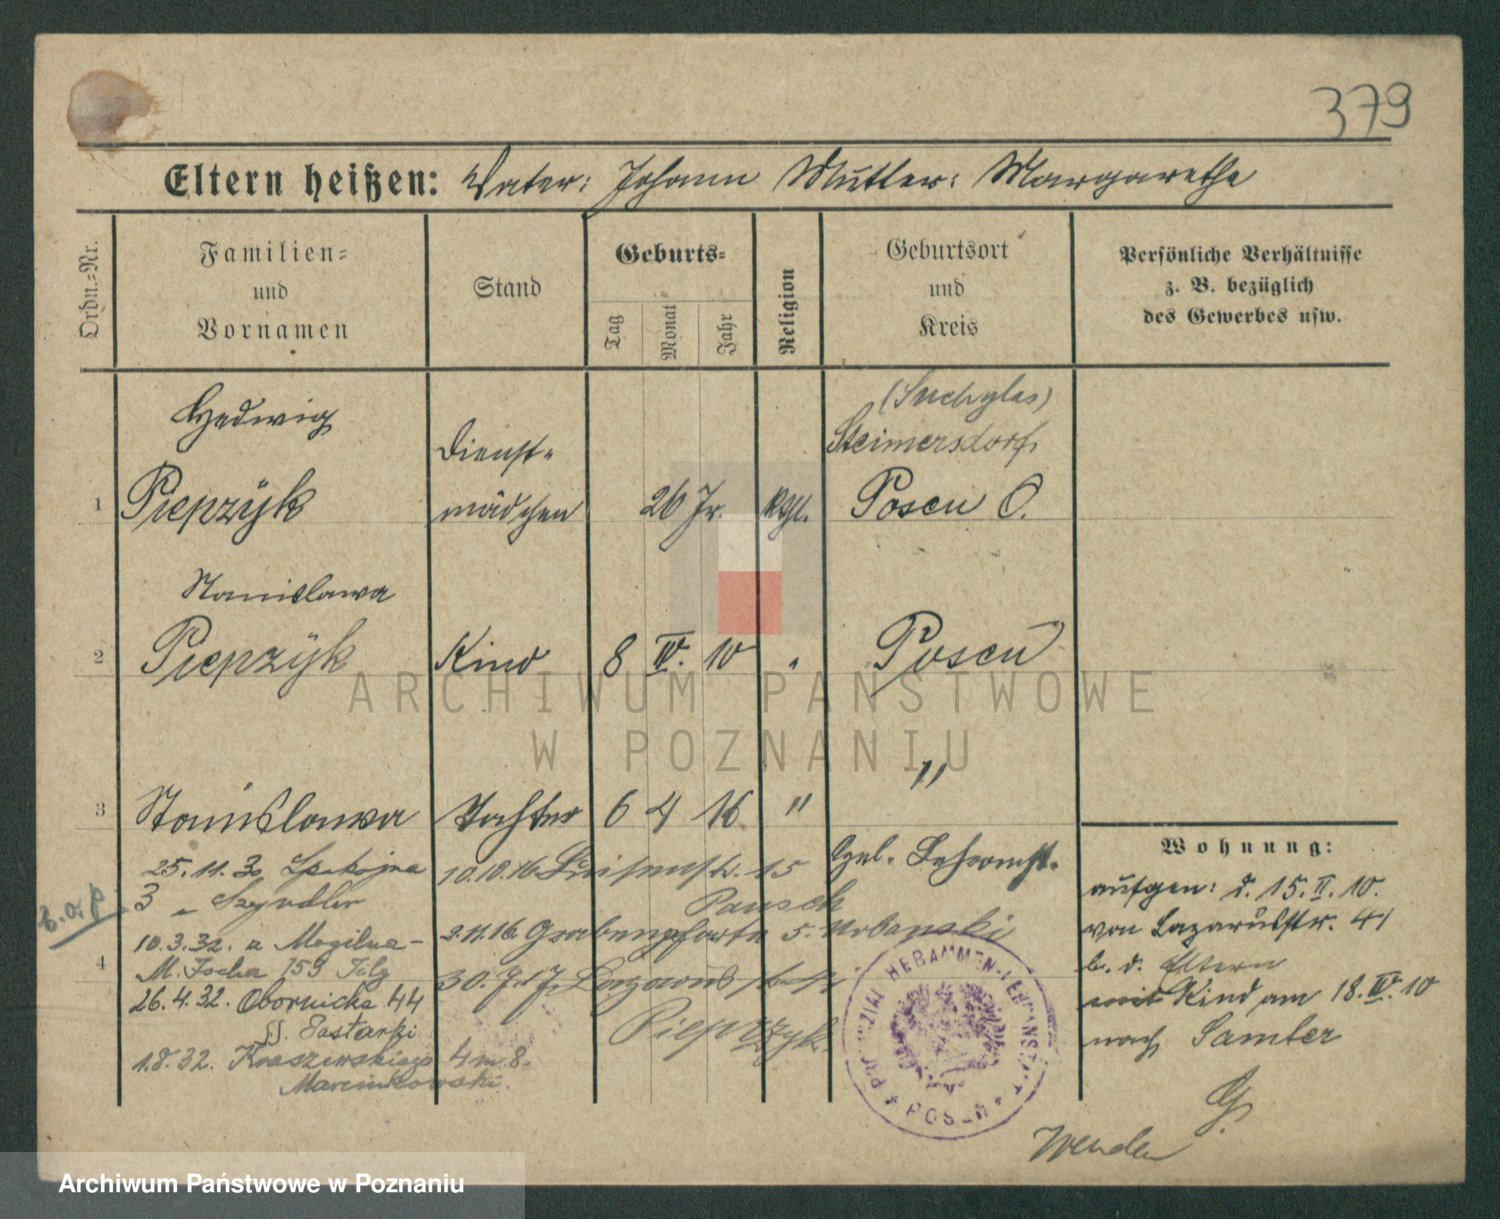 379
Eltern heißen: Vater: Johann Mutter: Margarethe
Ordn.-Nr.
Familien-
und
Vornamen
Stand
Geburts-
Tag
Monat
Jahr
Religion
Geburtsort
und
Kreis
Persönliche Verhältnisse
z. B. bezüglich
des Gewerbes usw.
Hedwig
(Suchylas)
Dienst-
Steimersdorf
1 Piepzÿk mädchen 26 Jr. Kthl. Posen O.
Stanislawa
2 Piepzÿk Kind 8 IV. 10 " Posen
ARCHIWUM PAŃSTWOWE
W POZNANIU
3 Stanislawa Tochter 6 4 16 " "
25.11.30 Spokojna
3 - Szyndler
10.3.32. a Mogilna-
4
26.4.32. Obornicka 44
1.8.32. Kraszewskiego 4 m 8.
Marcinkowski.
10.10.16 Luisenstr. 15
Pausch
2.11.16. Grabenpforte 5. Urbanski
30.7.17. Lazarusstr.
Pieprzyk.
Hebammen-Lehranst.
PROVINZIAL HEBAMMEN-LEHRANSTALT
POSEN
Wohnung:
aufgen: d. 15. II. 10.
von Lazarusstr. 41
b. d. Eltern
mit Kind am 18. IV. 10
nach Samter
G.
Wenden
Archiwum Państwowe w Poznaniu